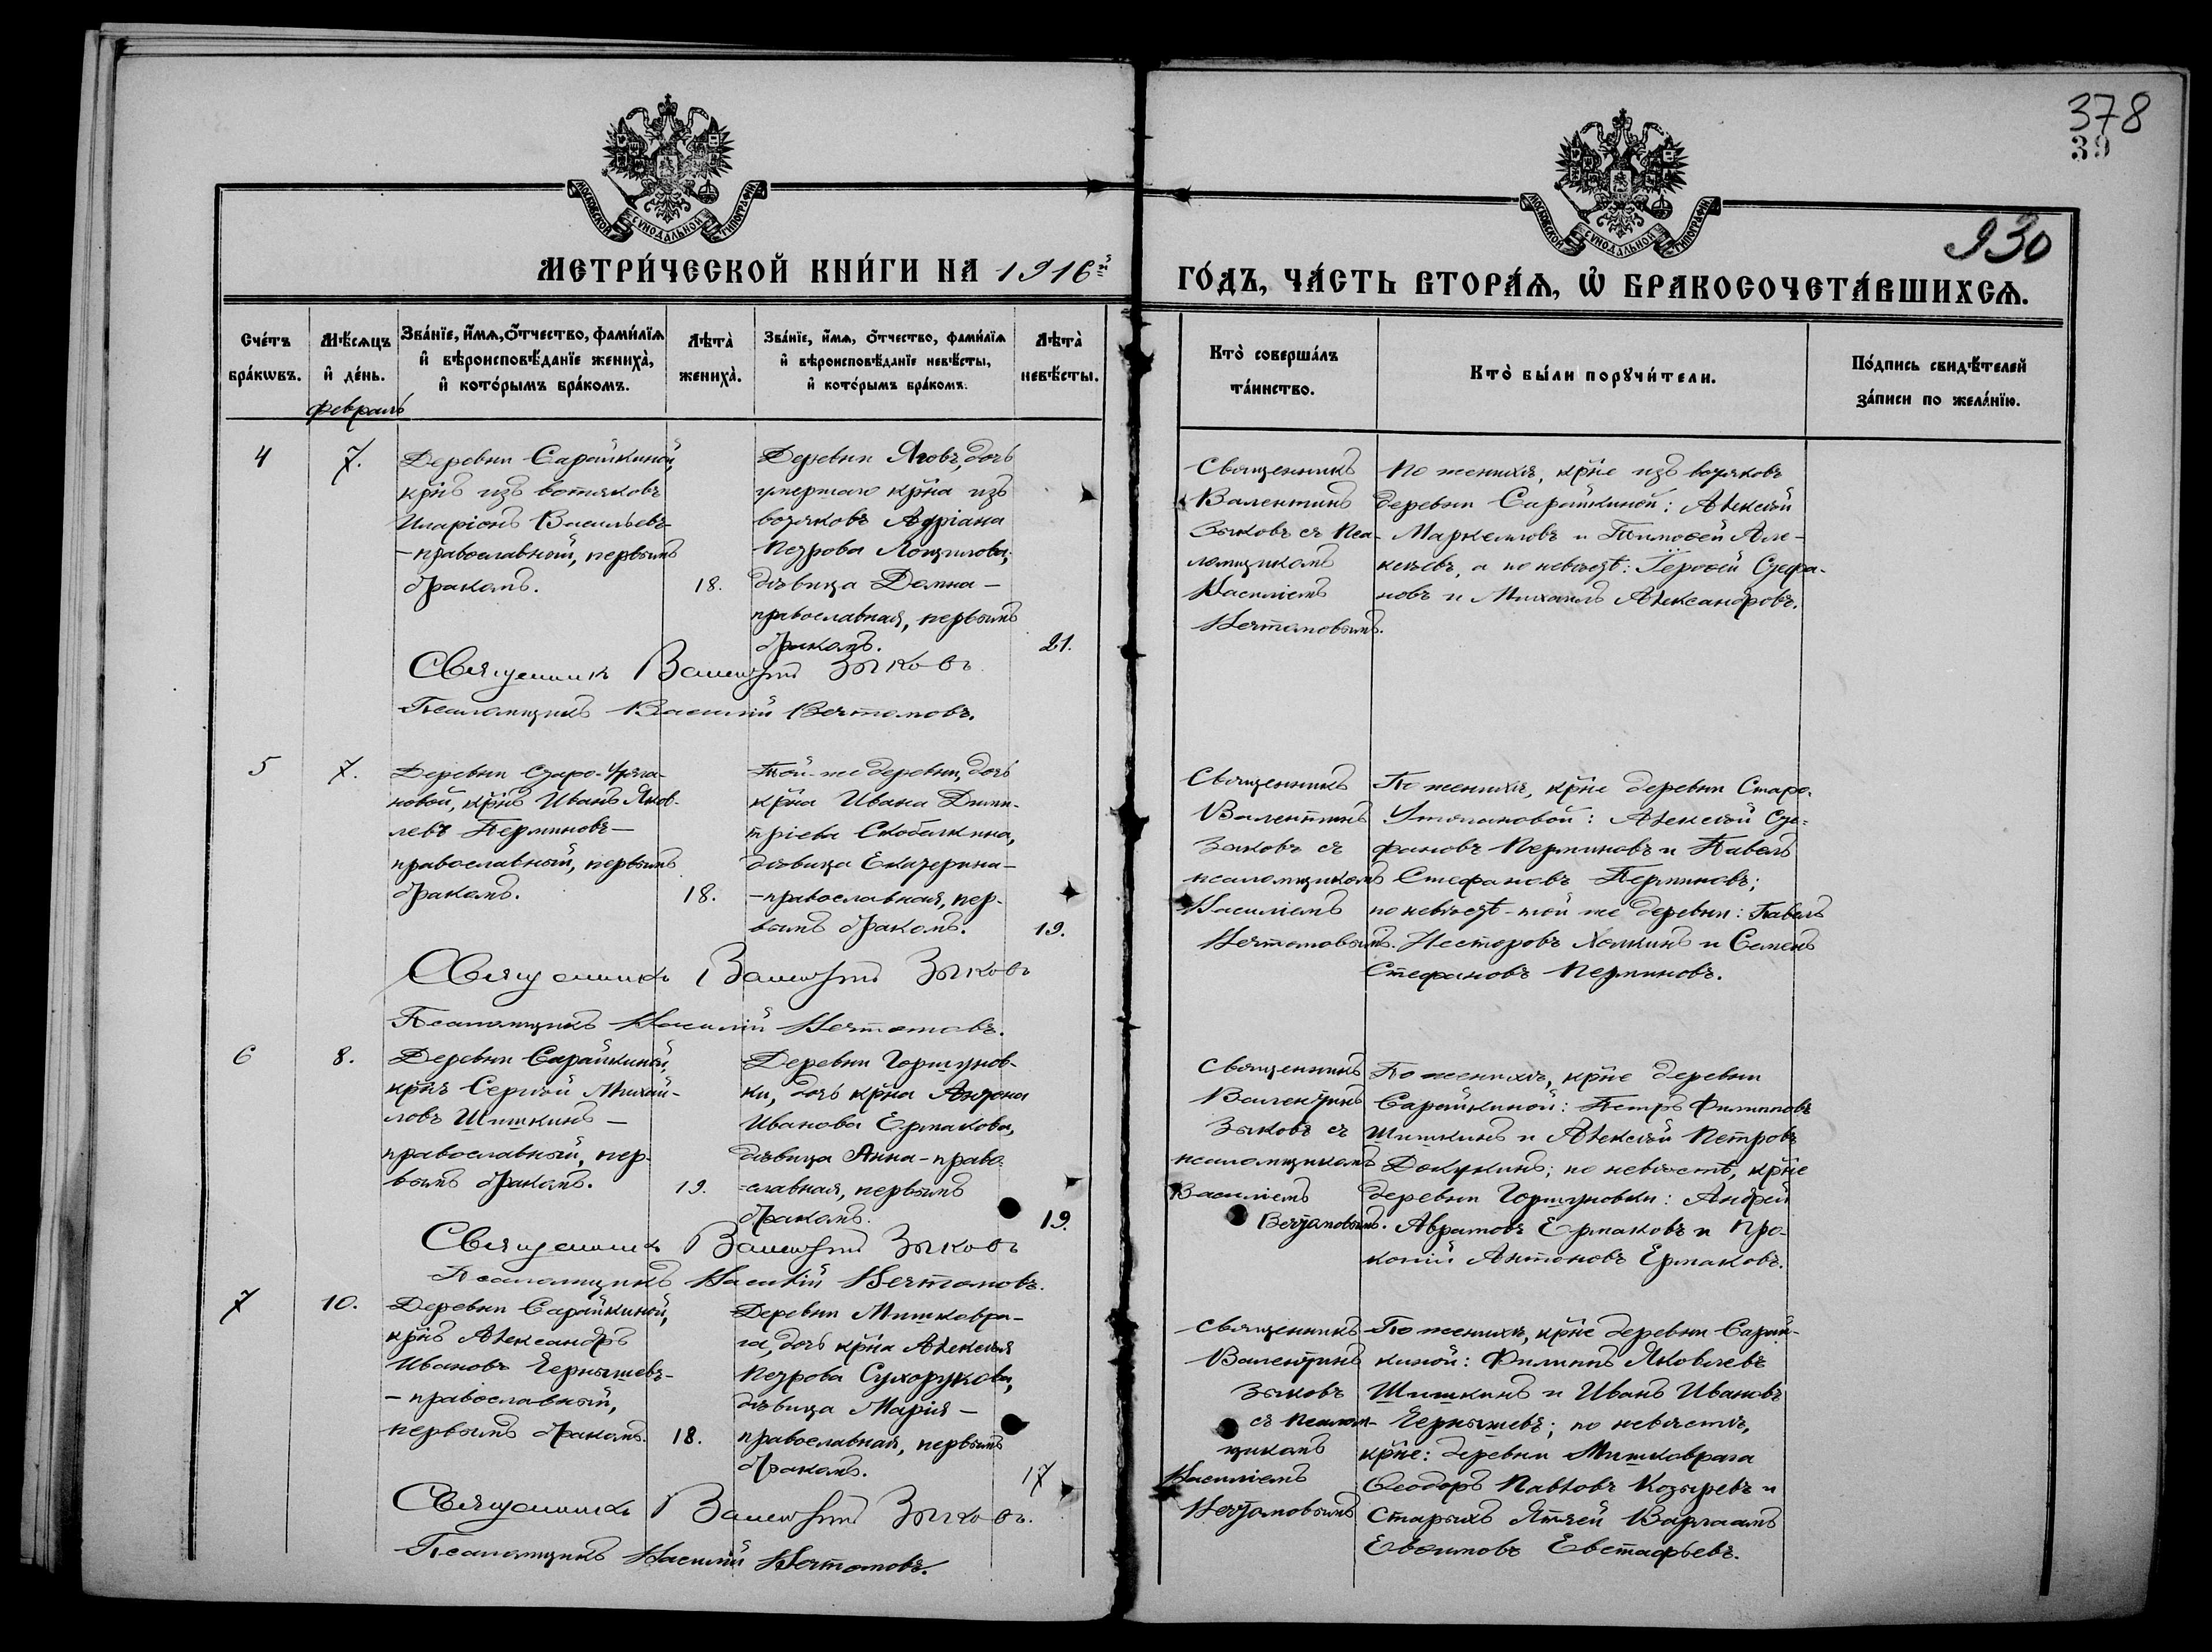 378
39
930
МОСКОВСКОЙ СѴНОДАЛЬНОЙ ТИПОГРАФІИ
МОСКОВСКОЙ СѴНОДАЛЬНОЙ ТИПОГРАФІИ
МЕТРИ́ЧЕСКОЙ КНИ́ГИ НА 1916й
ГО́ДЪ, ЧА́СТЬ ВТОРА́Ѧ, Ѡ҆ БРАКОСОЧЕТА́ВШИХСѦ.
Сче́тъ бра́кѡвъ.
Мѣ́сѧцъ и҆ де́нь.
Зва́нїе, и҆́мѧ, о҆́тчество, фами́лїѧ и҆ вѣроисповѣ́данїе жениха̀, и҆ кото́рымъ бра́комъ.
Лѣта̀ жениха̀.
Зва́нїе, и҆́мѧ, о҆́тчество, фами́лїѧ и҆ вѣроисповѣ́данїе невѣ́сты, и҆ кото́рымъ бра́комъ.
Лѣта̀ невѣ́сты.
Кто̀ соверша́лъ та́инство.
Кто̀ бы́ли порꙋчи́тели.
По́дпись свидѣ́телей за́писи по жела́нїю.
Февраль
4
7.
Деревни Сарайкиной,
крнъ изъ вотяковъ
Иларіонъ Васильевъ
– православный, первымъ
бракомъ.
18.
Деревни Яговъ, дочь
умершаго крна изъ
вотяковъ Адріана
Петрова
дѣвица Домна –
православная, первымъ
бракомъ.
21.
Священникъ
Валентинъ
Зыковъ съ Пса-
ломщикомъ
Василіемъ
Вечтомовымъ.
По женихѣ, крне изъ вотяковъ
деревни Сарайкиной: Алексѣй
Маркелловъ и Тимоѳей Але-
ксѣевъ, а по невѣстѣ: Іероѳей Стефа-
новъ и Михаилъ Александровъ.
Священникъ Валентинъ Зыковъ
Псаломщикъ Василій Вечтомовъ.
5
7.
Деревни Старо-Утча-
новой, крнъ Иванъ Яков-
левъ Перминовъ –
православный, первымъ
бракомъ.
18.
Той-же деревни, дочь
крна Ивана Дими-
тріева Скобелкина,
дѣвица Екатерина –
– православная, пер-
вымъ бракомъ.
19.
Священникъ
Валентинъ
Зыковъ съ
псаломщикомъ
Василіемъ
Вечтомовымъ.
По женихѣ, крне деревни Старо-
Утчановой: Алексѣй Сте-
фановъ Перминовъ и Павелъ
Стефановъ Перминовъ;
по невѣстѣ – той же деревни: Павелъ
Несторовъ Холкинъ и Семенъ
Стефановъ Перминовъ.
Священникъ Валентинъ Зыковъ
Псаломщикъ Василій Вечтомовъ.
6
8.
Деревни Сарайкиной,
крнъ Сергѣй Михай-
ловъ Шишкинъ –
православный, пер-
вымъ бракомъ.
19.
Деревни Горшунов-
ки, дочь крна Антона
Иванова Ермакова,
дѣвица Анна – право-
=славная, первымъ
бракомъ.
19.
Священникъ
Валентинъ
Зыковъ съ
псаломщикомъ
Василіемъ
Вечтомовымъ.
По женихѣ, крне деревни
Сарайкиной: Петръ Филипповъ
Шишкинъ и Алексѣй Петровъ
Докукинъ; по невѣстѣ, крне
деревни Горшуновки: Андрей
Аврамовъ Ермаковъ и Про-
копій Антоновъ Ермаковъ.
Священникъ Валентинъ Зыковъ
Псаломщикъ Василій Вечтомовъ.
7
10.
Деревни Сарайкиной,
крнъ Александръ
Ивановъ Чернышевъ –
– православный,
первымъ бракомъ.
18.
Деревни Мишковра-
га, дочь крна Алексѣя
Петрова Сухорукова,
дѣвица Марія –
православная, первымъ
бракомъ.
17
Священникъ
Валентинъ
Зыковъ
съ псалом-
щикомъ
Василіемъ
Вечтомовымъ
По женихѣ, крне деревни Сарай-
киной: Филиппъ Яковлевъ
Шишкинъ и Иванъ Ивановъ
Чернышевъ; по невѣстѣ,
крне: деревни Мишковрага
Ѳеодоръ Павловъ Козыревъ и
Старыхъ Ятчей Варлаамъ
Евѳимовъ Евстафьевъ.
Священникъ Валентинъ Зыковъ.
Псаломщикъ Василій Вечтомовъ.